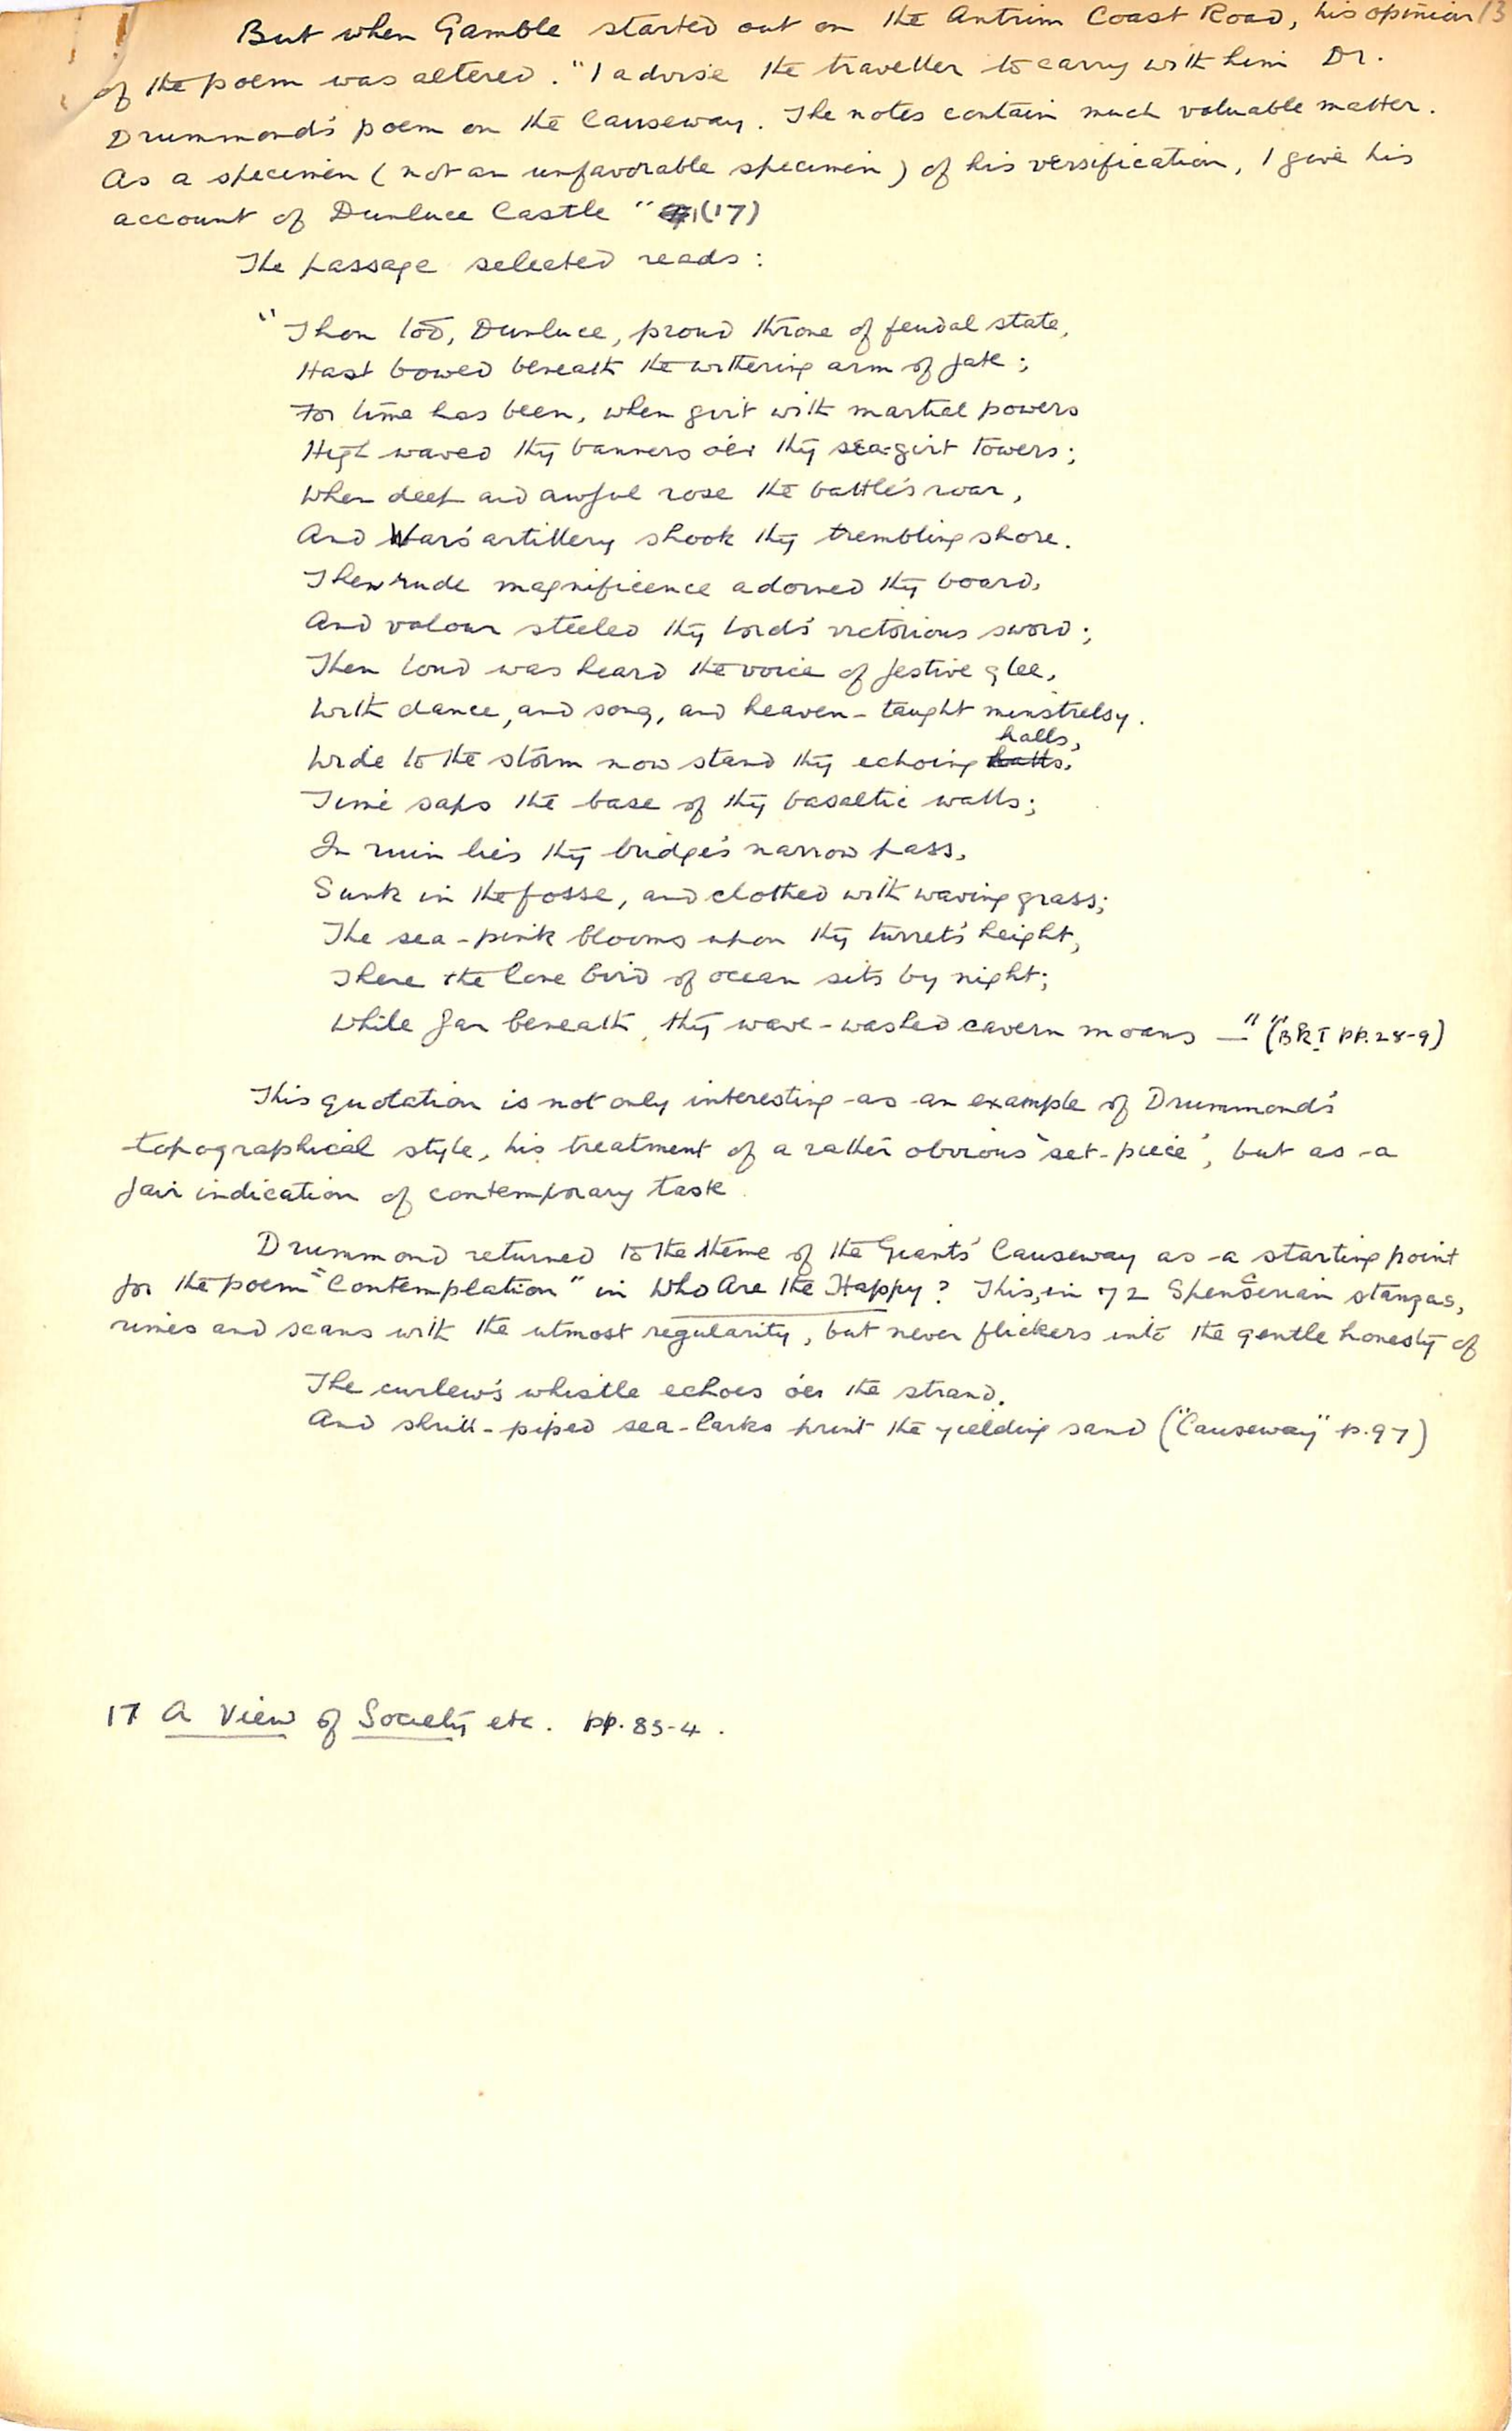 But when Gamble started out on the Antrim Coast Road, his opinion 13
of the poem was altered. "I advise the traveller to carry with him Dr.
Drummond's poem on the Causeway. The notes contain much valuable matter.
As a specimen (not an unfavorable specimen) of his versification, I give his
account of Dunluce Castle" (17)
The passage selected reads:
"Thou too, Dunluce, proud throne of feudal state,
Hast bowed beneath the withering arm of fate;
For time has been, when girt with martial powers
High waved thy banners o'er thy sea-girt towers;
When deep and awful rose the battle's roar,
And War's artillery shook thy trembling shore.
Then rude magnificence adorned thy board,
And valour steeled thy lord's victorious sword;
Then loud was heard the voice of festive glee,
With dance, and song, and heaven-taught minstrelsy.
halls,
Wide to the storm now stand thy echoing halls.
Time saps the base of thy basaltic walls;
In ruin lies thy bridge's narrow pass,
Sunk in the fosse, and clothed with waving grass;
The sea-pink blooms upon thy turret's height,
There the lone bird of ocean sits by night;
While far beneath, thy wave-washed cavern moans —" ("BK I pp. 28-9)
This quotation is not only interesting as an example of Drummond's
topographical style, his treatment of a rather obvious 'set-piece', but as a
fair indication of contemporary taste.
Drummond returned to the theme of the Giants' Causeway as a starting point
for the poem "Contemplation" in Who Are the Happy? This, in 72 Spenserian stanzas,
rimes and scans with the utmost regularity, but never flickers into the gentle honesty of
The curlew's whistle echoes o'er the strand,
And shrill-piped sea-larks print the yielding sand ("Causeway" p. 97)
17 A View of Society etc. pp. 83-4.